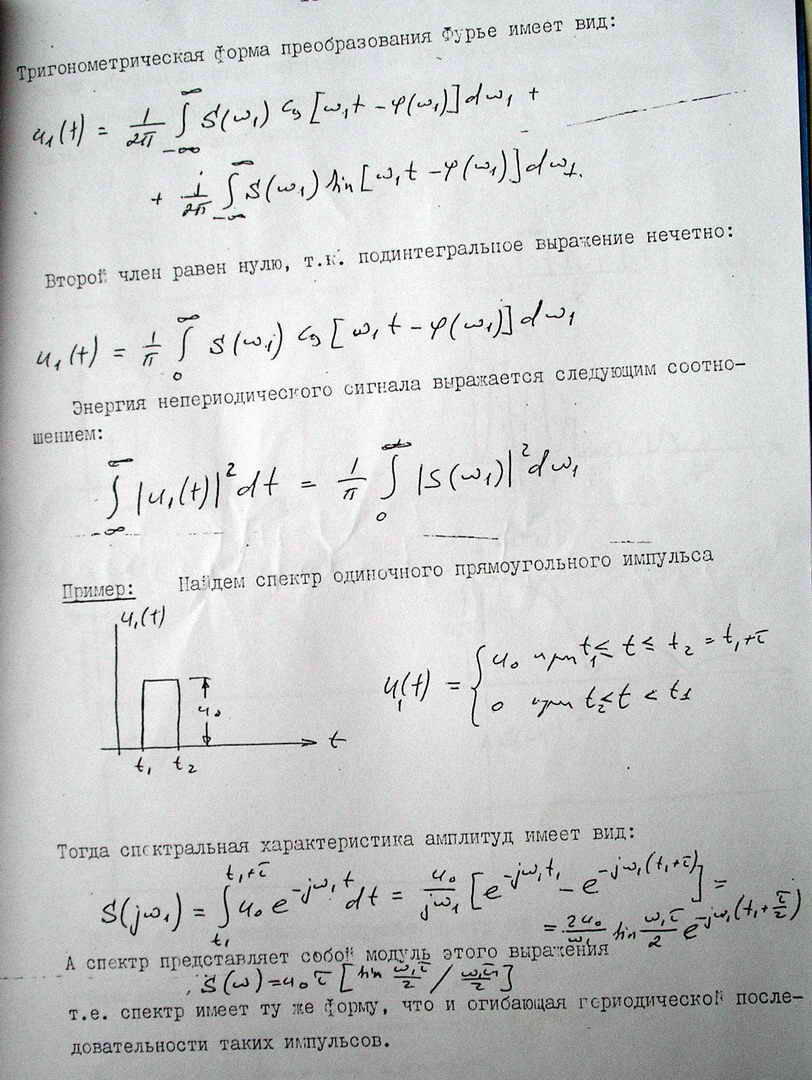 Тригонометрическая форма преобразования Фурье имеет вид:
u₁(t) = 1/2π ∫_{-∞}^{∞} S(ω₁) cos [ω₁t - φ(ω₁)] dω₁ +
+ j/2π ∫_{-∞}^{∞} S(ω₁) sin [ω₁t - φ(ω₁)] dω₁.
Второй член равен нулю, т.к. подинтегральное выражение нечетно:
u₁(t) = 1/π ∫_{0}^{∞} S(ω₁) cos [ω₁t - φ(ω₁)] dω₁
Энергия непериодического сигнала выражается следующим соотно-
шением:
∫_{-∞}^{∞} |u₁(t)|² dt = 1/π ∫_{0}^{∞} |S(ω₁)|² dω₁
Пример: Найдем спектр одиночного прямоугольного импульса
u₁(t)
u₁(t) = { u₀ при t₁ ≤ t ≤ t₂ = t₁+τ
0 при t₂ < t < t₁
u₀
t
t₁ t₂
Тогда спектральная характеристика амплитуд имеет вид:
S(jω₁) = ∫_{t₁}^{t₁+τ} u₀ e^{-jω₁t} dt = u₀/jω₁ [e^{-jω₁t₁} - e^{-jω₁(t₁+τ)}] =
= 2u₀/ω₁ sin ω₁τ/2 e^{-jω₁(t₁+τ/2)}
А спектр представляет собой модуль этого выражения
S(ω) = u₀τ [sin ω₁τ/2 / ω₁τ/2]
т.е. спектр имеет ту же форму, что и огибающая периодической после-
довательности таких импульсов.